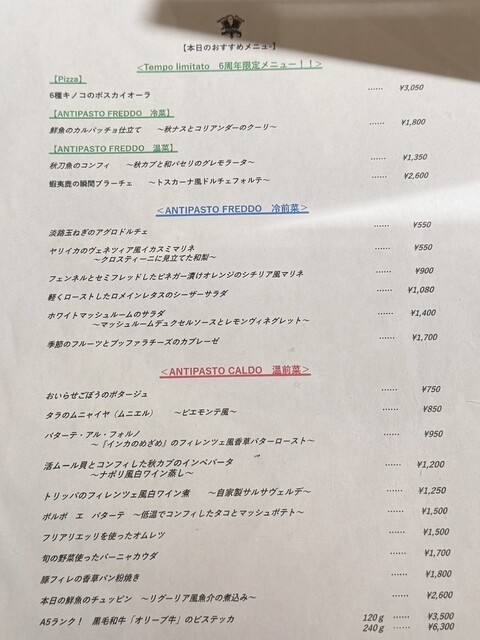 【本日のおすすめメニュー】
<Tempo limitato 6周年限定メニュー！！>
【Pizza】
6種キノコのボスカイオーラ …… ¥3,050
【ANTIPASTO FREDDO 冷菜】
鮮魚のカルパッチョ仕立て ～秋ナスとコリアンダーのクーリ～ …… ¥1,800
【ANTIPASTO FREDDO 温菜】
秋刀魚のコンフィ ～秋カブと和パセリのグレモラータ～ …… ¥1,350
蝦夷鹿の瞬間ブラーチェ ～トスカーナ風ドルチェフォルテ～ …… ¥2,600
<ANTIPASTO FREDDO 冷前菜>
淡路玉ねぎのアグロドルチェ …… ¥550
ヤリイカのヴェネツィア風イカスミマリネ …… ¥550
～クロスティーニに見立てた和梨～
フェンネルとセミフレッドしたビネガー漬けオレンジのシチリア風マリネ …… ¥900
軽くローストしたロメインレタスのシーザーサラダ …… ¥1,080
ホワイトマッシュルームのサラダ …… ¥1,400
～マッシュルームデュクセルソースとレモンヴィネグレット～
季節のフルーツとブッファラチーズのカプレーゼ …… ¥1,700
<ANTIPASTO CALDO 温前菜>
おいらせごぼうのポタージュ …… ¥750
タラのムニャイヤ（ムニエル） ～ピエモンテ風～ …… ¥850
パターテ・アル・フォルノ …… ¥950
～『インカのめざめ』のフィレンツェ風香草バターロースト～
活ムール貝とコンフィした秋カブのインペパータ …… ¥1,200
～ナポリ風白ワイン蒸し～
トリッパのフィレンツェ風白ワイン煮 ～自家製サルサヴェルデ～ …… ¥1,250
ポルポ エ パターテ ～低温でコンフィしたタコとマッシュポテト～ …… ¥1,500
フリアリエッリを使ったオムレツ …… ¥1,500
旬の野菜使ったバーニャカウダ …… ¥1,700
豚フィレの香草パン粉焼き …… ¥1,800
本日の鮮魚のチュッピン ～リグーリア風魚介の煮込み～ …… ¥2,600
A5ランク！ 黒毛和牛「オリーブ牛」のビステッカ 120g …… ¥3,500
240g …… ¥6,300